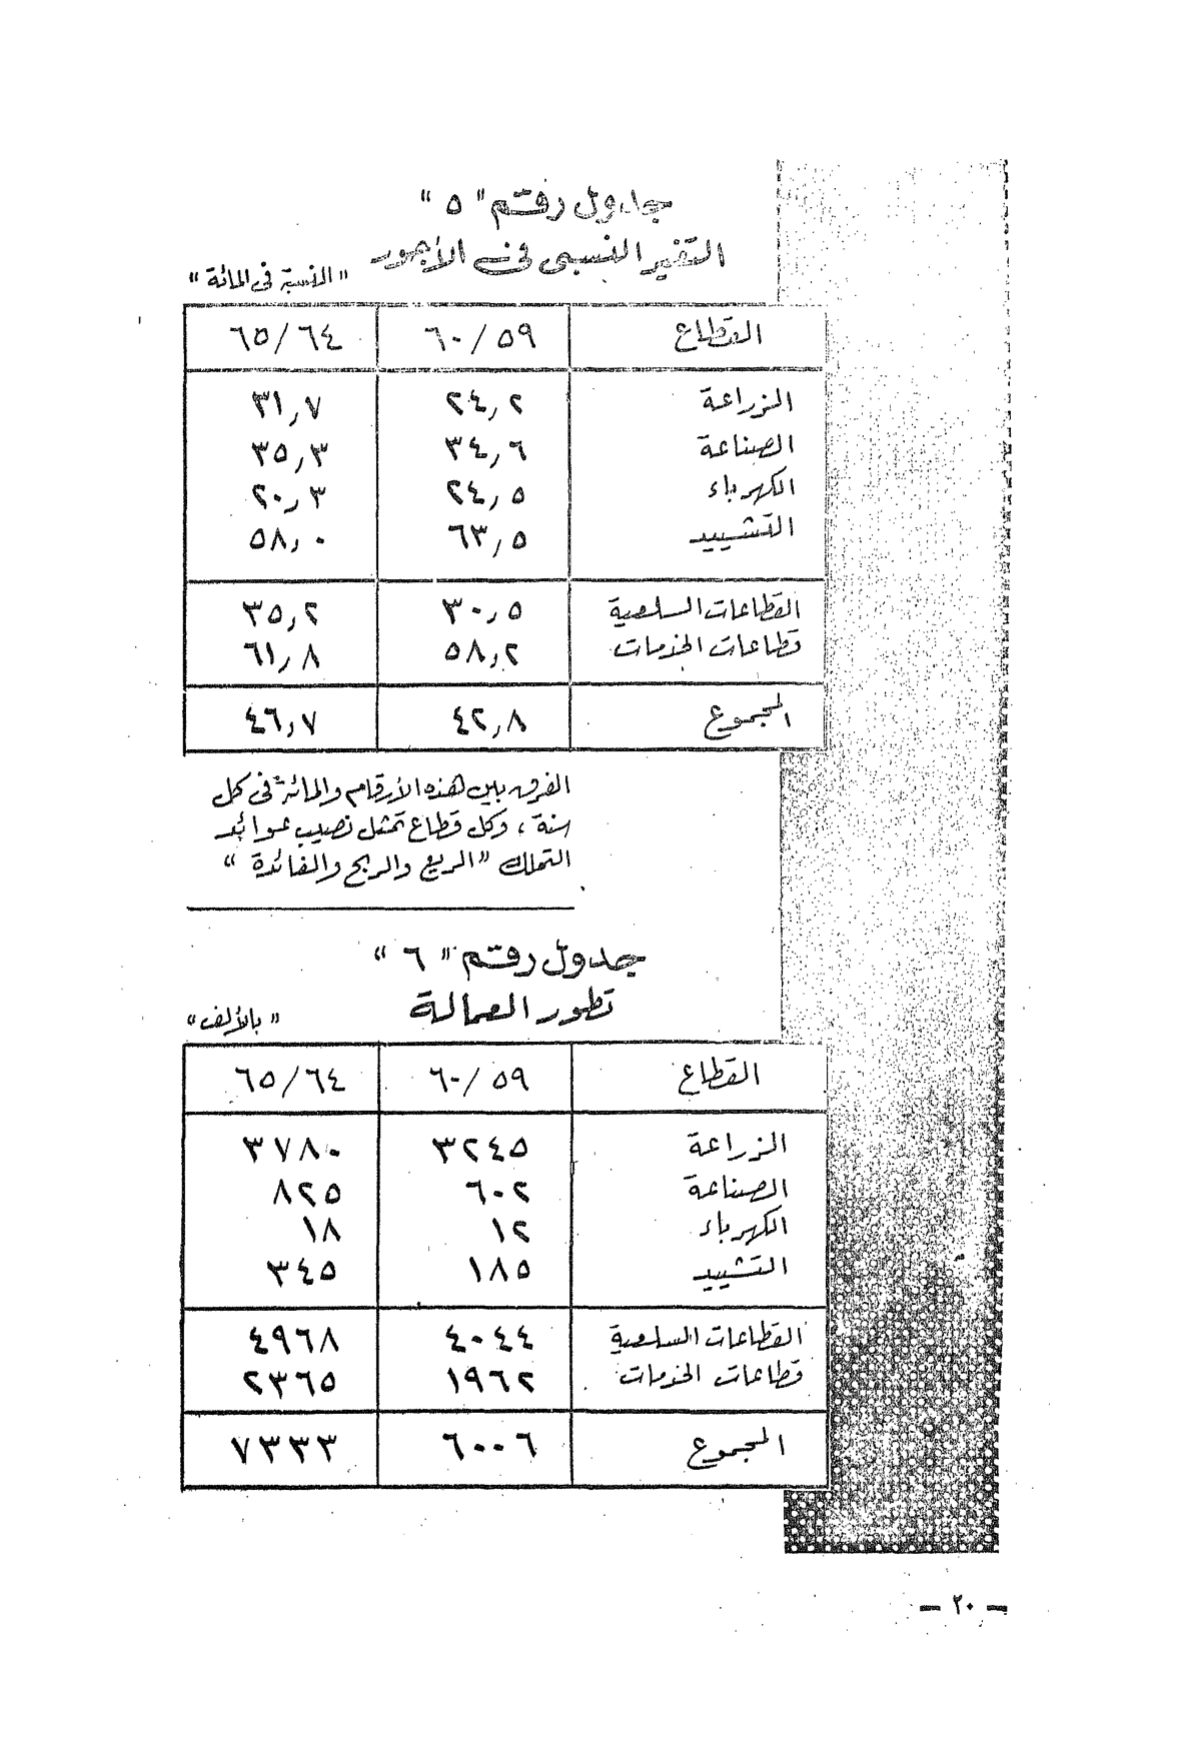 جدول رقم "٥"
التغير النسبى فى الأجور
"النسبة فى المائة"
القطاع ٥٩/٦٠ ٦٤/٦٥
الزراعة ٢٤,٢ ٣١,٧
الصناعة ٣٤,٦ ٣٥,٣
الكهرباء ٢٤,٥ ٢٠,٣
التشييد ٦٣,٥ ٥٨,٠
القطاعات السلعية ٣٠,٥ ٣٥,٢
قطاعات الخدمات ٥٨,٢ ٦١,٨
المجموع ٤٢,٨ ٤٦,٧
الفرق بين هذه الأرقام والمائة فى كل
سنة ، وكل قطاع تمثل نصيب عوائد
التملك "الريع والربح والفائدة"
جدول رقم "٦"
تطور العمالة
"بالألف"
القطاع ٥٩/٦٠ ٦٤/٦٥
الزراعة ٣٢٤٥ ٣٧٨٠
الصناعة ٦٠٢ ٨٢٥
الكهرباء ١٢ ١٨
التشييد ١٨٥ ٣٤٥
القطاعات السلعية ٤٠٤٤ ٤٩٦٨
قطاعات الخدمات ١٩٦٢ ٢٣٦٥
المجموع ٦٠٠٦ ٧٣٣٣
— ٢٠ —